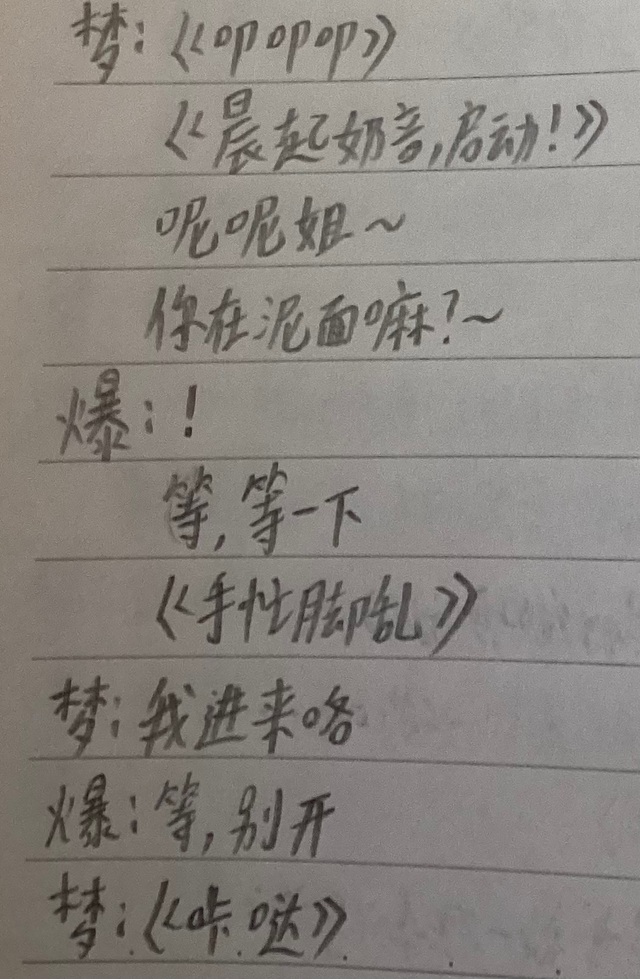 梦:《叩叩叩》
《晨起奶音,启动!》
呢呢姐~
你在泥面嘛?~
爆:!
等,等一下
《手忙脚乱》
梦:我进来咯
爆:等,别开
梦:《咔哒》